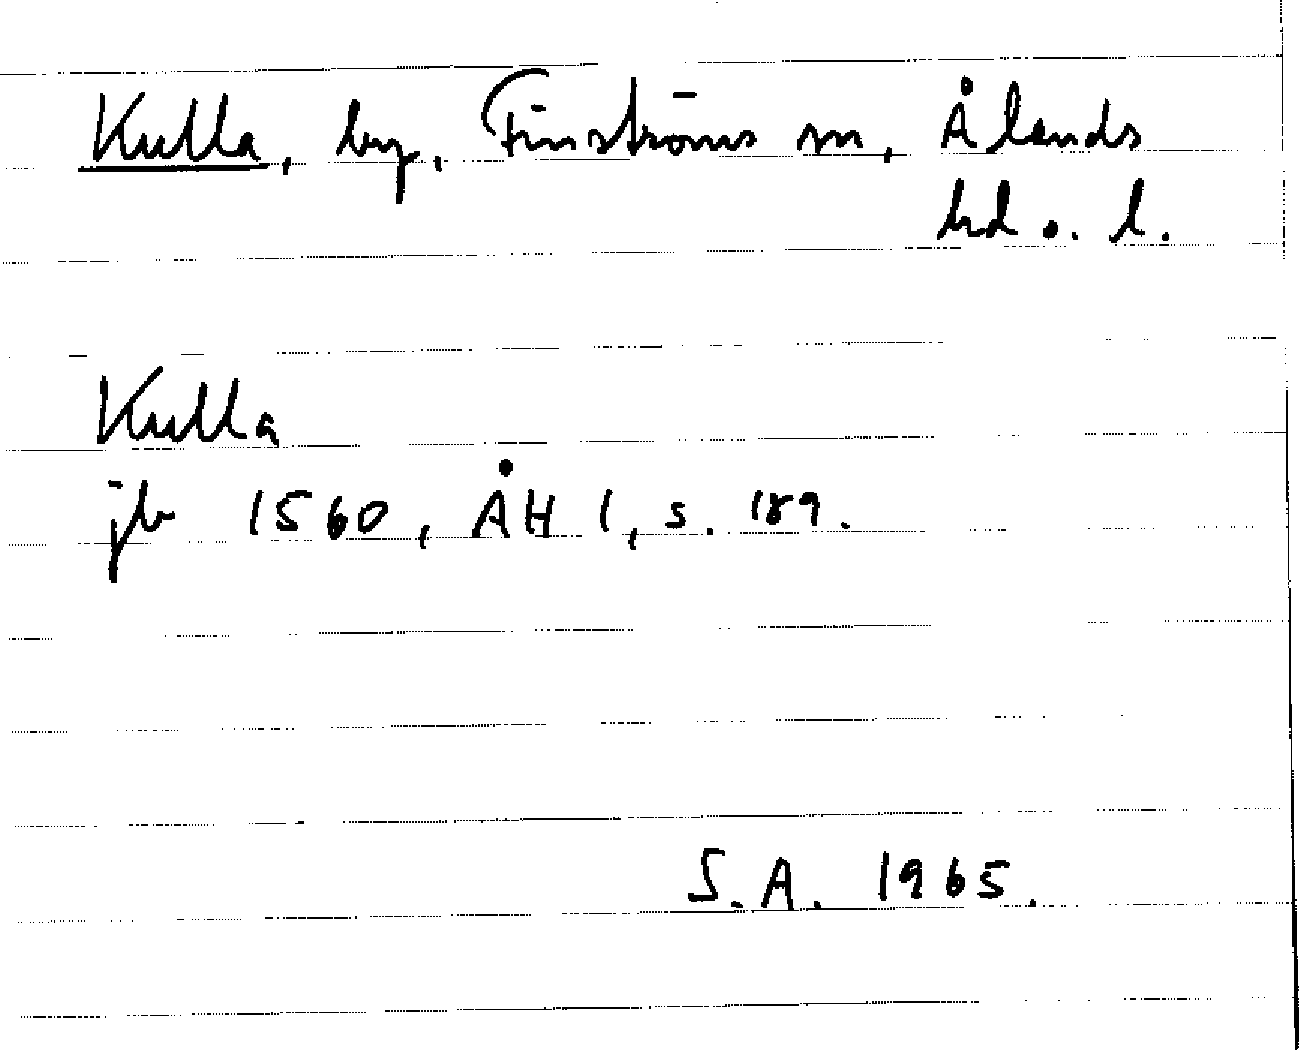 Kulla, by, Finströms sn, Ålands
hd o. l.
Kulla
jb 1560, ÅH 1, s. 189.
S.A. 1965.